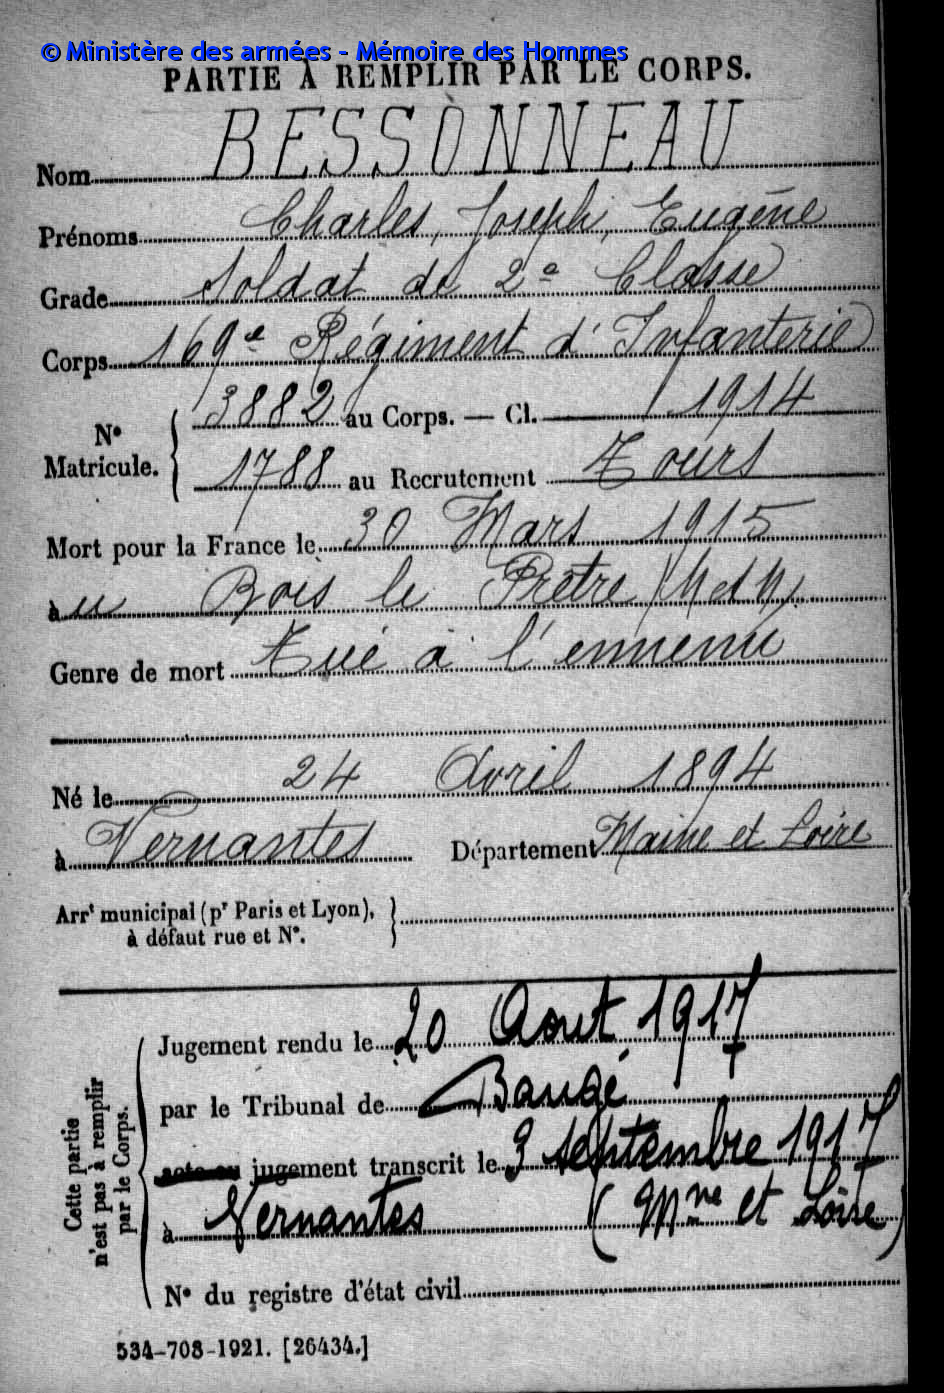 © Ministère des armées - Mémoire des Hommes
PARTIE À REMPLIR PAR LE CORPS.
Nom BESSONNEAU
Prénoms Charles, Joseph, Eugène
Grade Soldat de 2e Classe
Corps 169e Régiment d'Infanterie
N° Matricule. { 3882 au Corps. — Cl. 1914
1788 au Recrutement Tours
Mort pour la France le 30 Mars 1915
à u Bois le Prêtre (M et M).
Genre de mort Tué à l'ennemi
Né le 24 Avril 1894
à Vernantes Département Maine et Loire
Arrt municipal (pr Paris et Lyon), }
à défaut rue et N°.
Cette partie n'est pas à remplir par le Corps.
Jugement rendu le 20 Aout 1917
par le Tribunal de Baugé
acte ou jugement transcrit le 3 septembre 1917
à Vernantes (Mne et Loire)
N° du registre d'état civil
534-708-1921. [26434.]